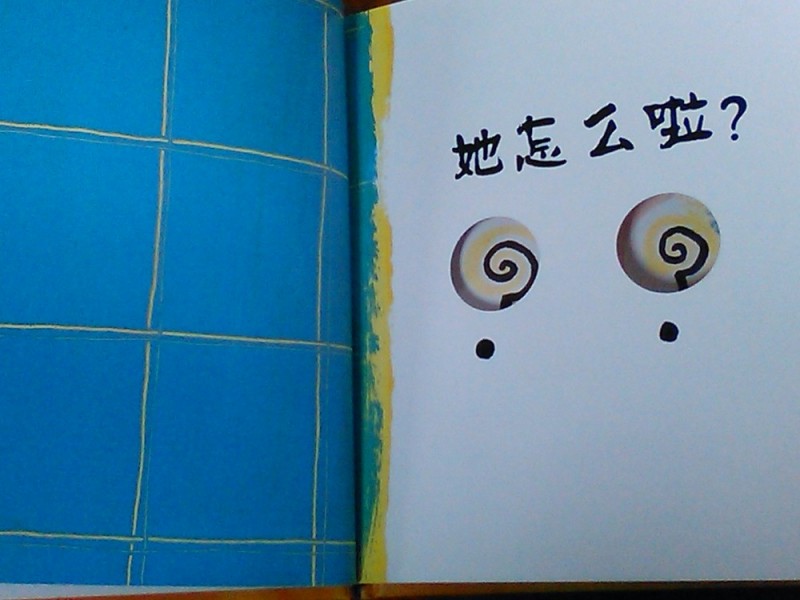 她怎么啦?